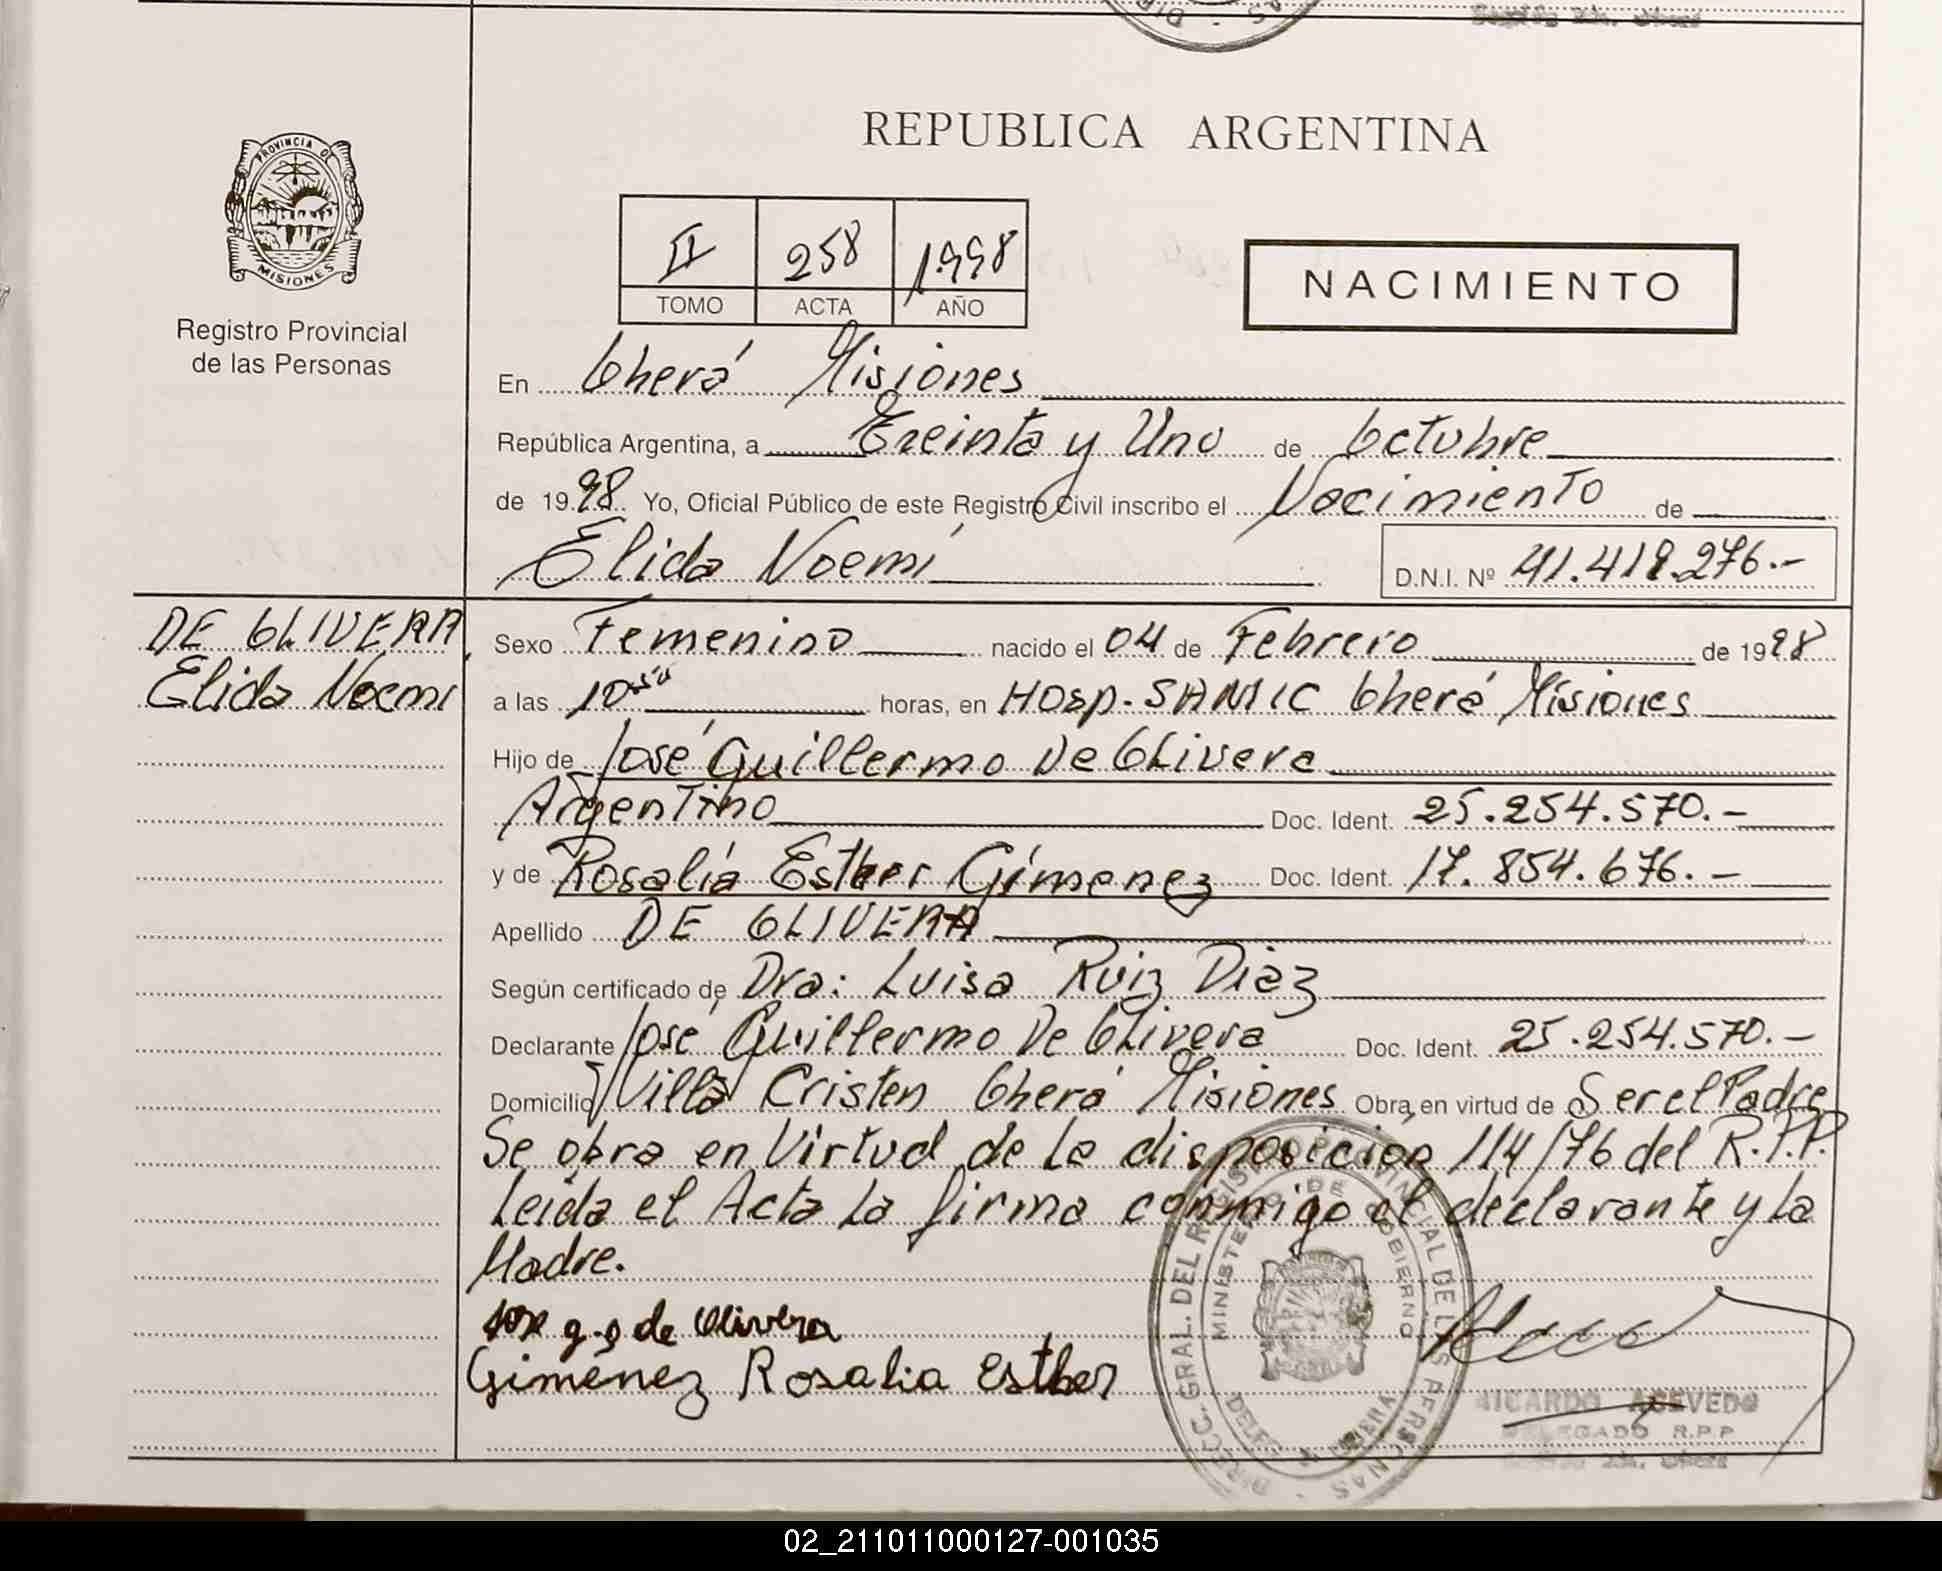 REPUBLICA ARGENTINA
PROVINCIA DE
MISIONES
Registro Provincial
de las Personas
II 258 1998
TOMO ACTA AÑO
NACIMIENTO
En Oberá Misiones
República Argentina, a Treinta y Uno de Octubre
de 1998 Yo, Oficial Público de este Registro Civil inscribo el Nacimiento de
Elida Noemí D.N.I. Nº 41.419.276.-
DE OLIVERA
Elida Noemi
Sexo Femenino nacido el 04 de Febrero de 1998
a las 10 horas, en Hosp. SAMIC Oberá Misiones
Hijo de José Guillermo De Olivera
Argentino Doc. Ident. 25.254.570.-
y de Rosalía Esther Gímenez Doc. Ident. 17.854.676.-
Apellido DE OLIVERA
Según certificado de Dra: Luisa Ruiz Diaz
Declarante José Guillermo De Olivera Doc. Ident. 25.254.570.-
Domicilio Villa Cristen Oberá Misiones Obra en virtud de Ser el Padre
Se obra en Virtud de la disposición 114/76 del R.P.P.
Leída el Acta la firma conmigo el declarante y la
Madre.
Jose g.g de Olivera
Giménez Rosalia Esther
DIRECC. GRAL. DEL REGISTRO PROVINCIAL DE LAS PERSONAS
MINISTERIO DE GOBIERNO
RICARDO ACEVEDO
DELEGADO R.P.P
02_211011000127-001035